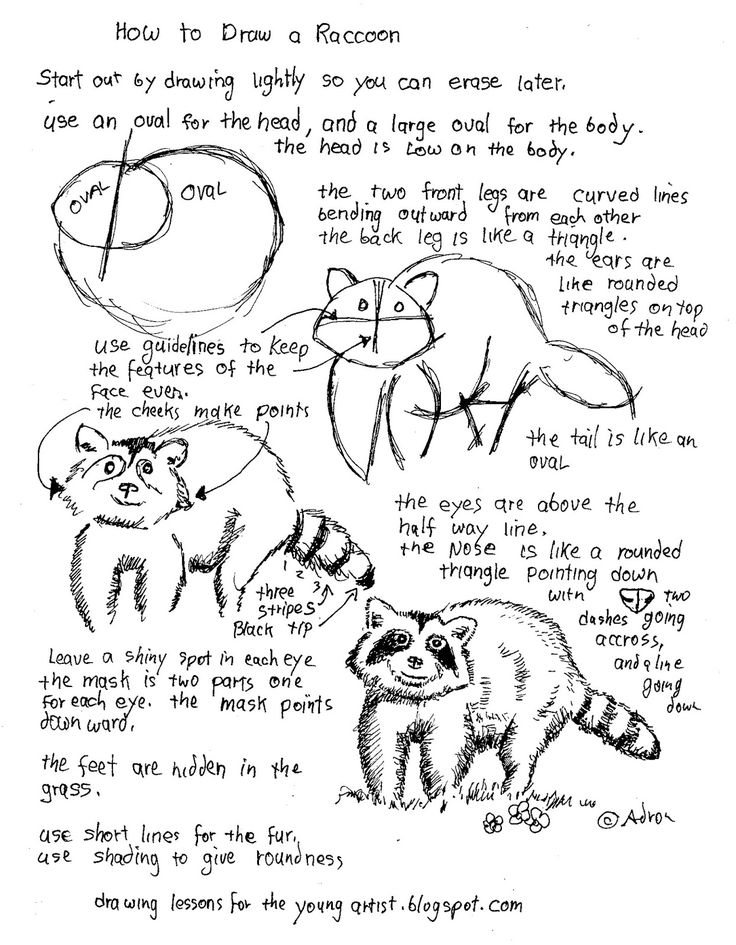 How to Draw a Raccoon
Start out by drawing lightly so you can erase later.
use an oval for the head, and a large oval for the body.
the head is low on the body.
OVAL
OVAL
the two front legs are curved lines
bending outward from each other
the back leg is like a triangle.
the ears are
like rounded
triangles on top
of the head
use guidelines to keep
the features of the
face even.
the cheeks make points
the tail is like an
OVAL
the eyes are above the
half way line.
the Nose is like a rounded
triangle pointing down
with two
dashes going
accross,
and a line
going
down
1 2 3
three
stripes
Black tip
Leave a shiny spot in each eye
the mask is two parts one
for each eye. the mask points
down ward.
the feet are hidden in the
grass.
use short lines for the fur.
use shading to give roundness
© Adron
drawing lessons for the young artist.blogspot.com